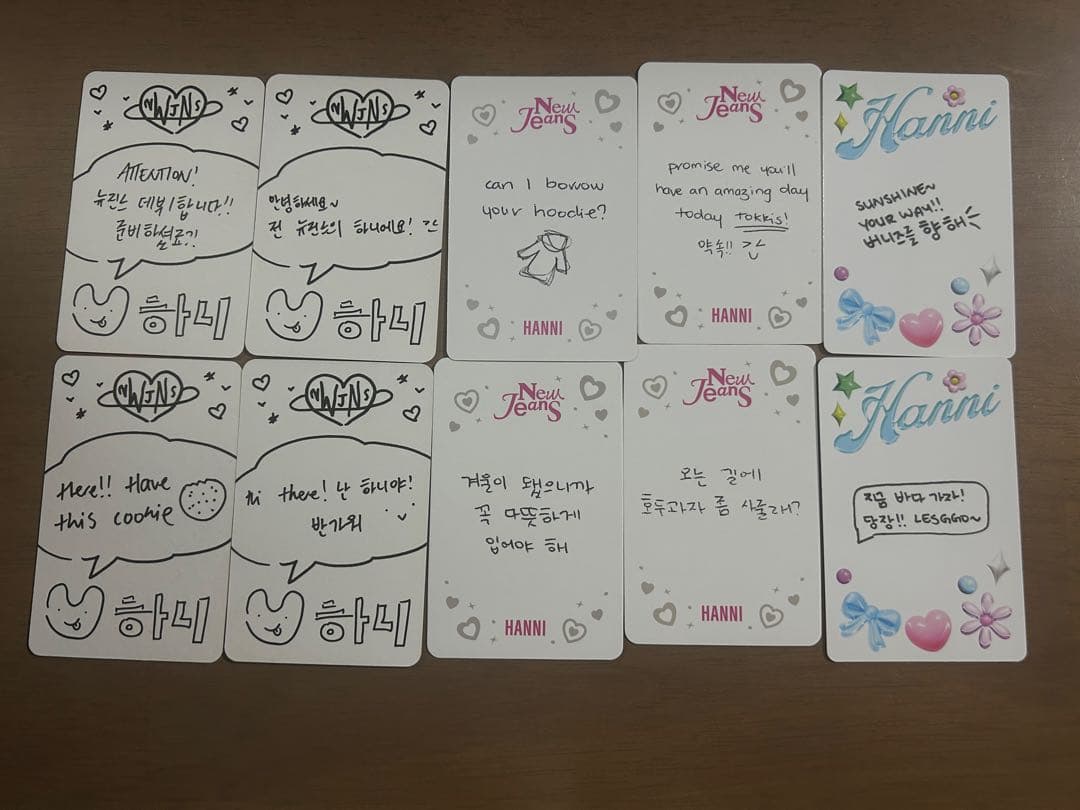 NWJNS
ATTENTION!
뉴진스 데뷔합니다!!
준비하실료?!
하니
NWJNS
안녕하세요~
전 뉴진스의 하니에요!
하니
New
Jeans
can I borrow
your hoodie?
HANNI
New
Jeans
promise me you'll
have an amazing day
today tokkis!
약속!!
HANNI
Hanni
SUNSHINE~
YOUR WAY!!
버니즈를 향해
NWJNS
Here!! Have
this cookie
하니
NWJNS
Hi there! 난 하니야!
반가워
하니
New
Jeans
겨울이 됐으니까
꼭 따뜻하게
입어야 해
HANNI
New
Jeans
오는 길에
호두과자 좀 사올래?
HANNI
Hanni
지금 바다 가자!
당장!! LESGGO~